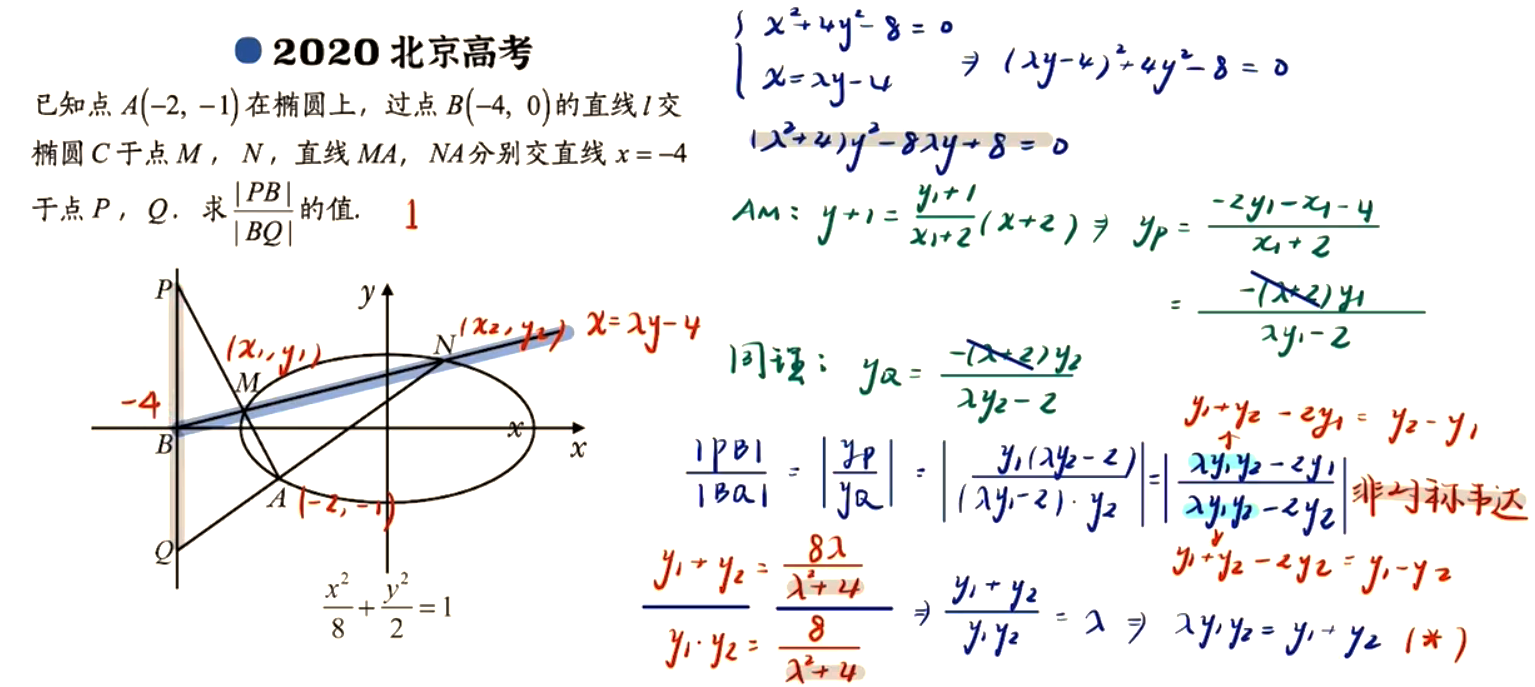 2020 北京高考
已知点 A(-2, -1)在椭圆上，过点 B(-4, 0)的直线 l 交
椭圆 C 于点 M ， N ，直线 MA， NA分别交直线 x = -4
于点 P ， Q . 求 |PB|/|BQ| 的值. 1
P
y
(x₁, y₁)
N
(x₂, y₂)
x = λy - 4
M
-4
B
x
x
A (-2, -1)
Q
x²/8 + y²/2 = 1
{ x² + 4y² - 8 = 0
x = λy - 4 ⇒ (λy - 4)² + 4y² - 8 = 0
(λ² + 4)y² - 8λy + 8 = 0
AM: y + 1 = (y₁ + 1)/(x₁ + 2) (x + 2) ⇒ yP = (-2y₁ - x₁ - 4)/(x₁ + 2)
= -(λ+2)y₁/(λy₁ - 2)
同理: yQ = -(λ+2)y₂/(λy₂ - 2)
y₁ + y₂ - 2y₁ = y₂ - y₁
↑
|PB|/|BQ| = |yP/yQ| = |y₁(λy₂ - 2)/((λy₁ - 2)·y₂)| = |(λy₁y₂ - 2y₁)/(λy₁y₂ - 2y₂)| 非对称韦达
↓
y₁ + y₂ - 2y₂ = y₁ - y₂
y₁ + y₂ = 8λ/(λ² + 4)
y₁·y₂ = 8/(λ² + 4)
⇒ (y₁ + y₂)/(y₁y₂) = λ ⇒ λy₁y₂ = y₁ + y₂ (*)